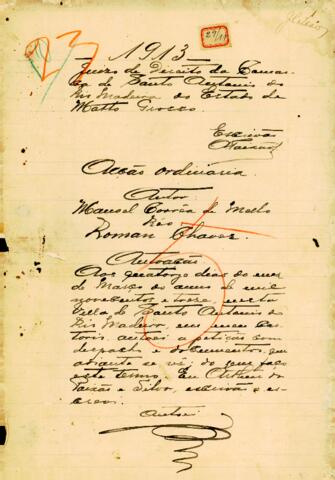 23
29/11
1913
Juizo de Direito da Comar-
ca de Santo Antonio do
Rio Madeira do Estado de
Matto Grosso
Escrivão
Acção ordinaria.
Autor
Manoel Corrêa de Mello
Reo
Roman Chavez
5
Autoação
Aos quatorze dias do mez
de Março do anno de mil
novecentos e treze, nesta
Villa de Santo Antonio do
Rio Madeira, em meu Car-
torio, autoei a petição com
despacho e documentos que
adiante se vê; do que faço
este termo. Eu
Paixão e Silva, escrivão o es-
crevi.
Autoei